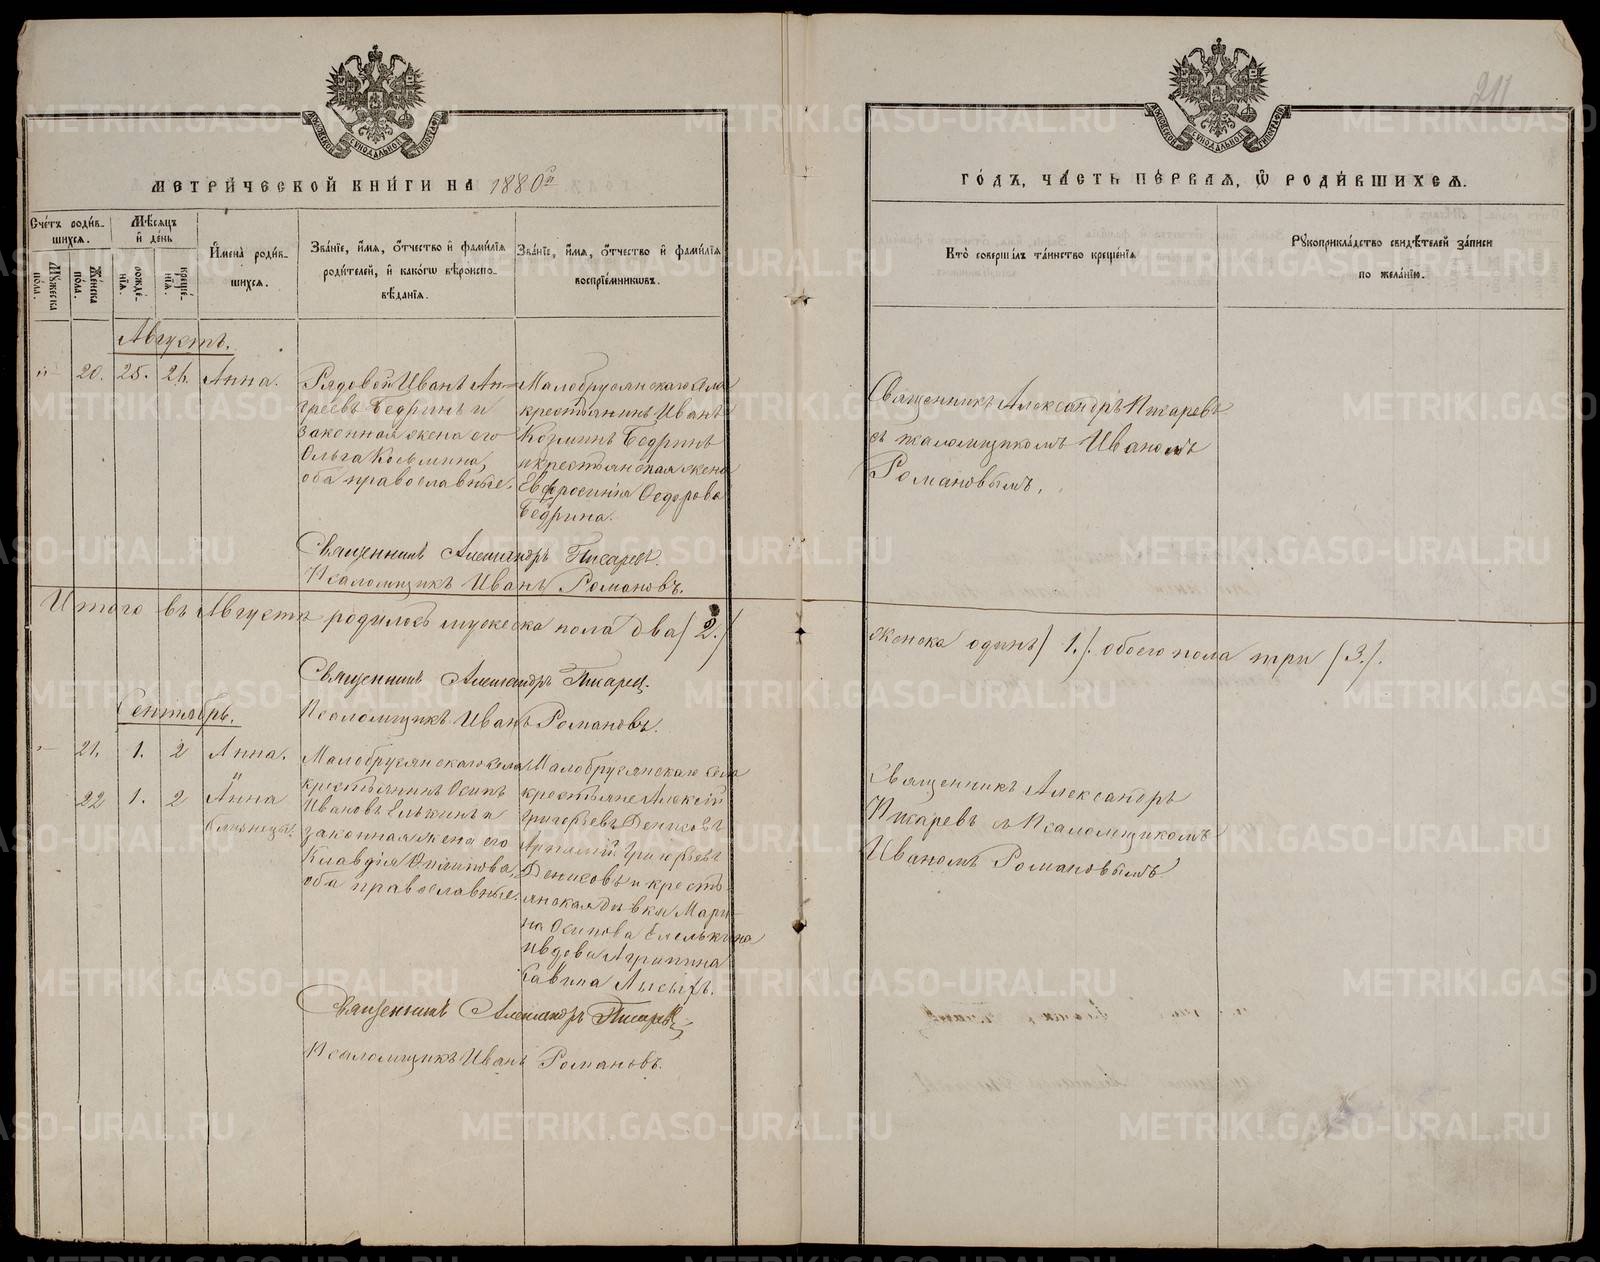 211
МОСКОВСКОЙ СѴНОДАЛЬНОЙ ТИПОГРАФІИ
МОСКОВСКОЙ СѴНОДАЛЬНОЙ ТИПОГРАФІИ
МЕТРИ́ЧЕСКОЙ КНИ́ГИ НА 1880й
ГО́ДЪ, ЧА́СТЬ ПЕ́РВАЯ, Ѿ РОДИ́ВШИХСЯ.
Сче́тъ роди́в-
шихся.
Му́жеска по́ла.
Же́нска по́ла.
Мѣ́сяцъ
и де́нь
рожде́-
нія.
креще́-
нія.
Имена̀ роди́в-
шихся.
Зва́ніе, и́мя, о́тчество и фами́лія
роди́телей, и како́гѡ вѣроиспо-
вѣ́данія.
Зва́ніе, и́мя, о́тчество и фами́лія
воспріе́мникѡвъ.
Кто̀ соверша́лъ та́инство креще́нія
Рукоприкла́дство свидѣ́телей за́писи
по жела́нію.
Августъ.
20. 25. 26. Анна.
Рядовой Иванъ Ан-
дреевъ Бедринъ и
законная жена его
Ольга Козьмина,
оба православные.
Малобрусянскаго села
крестьянинъ Иванъ
Козминъ Бедринъ
и крестьянская жена
Евфросинія Ѳедорова
Бедрина.
Священникъ Александръ Писаревъ
съ псаломщикомъ Иваномъ
Романовымъ.
Священникъ Александръ Писаревъ.
Псаломщикъ Иванъ Романовъ.
Итого въ Августѣ родилось мужеска пола два /2./
женска одинъ /1./ обоего пола три /3./.
Священникъ Александръ Писаревъ.
Псаломщикъ Иванъ Романовъ.
Сентябрь.
21. 1. 2 Анна.
и
22 1. 2 Анна
близнецы.
Малобрусянскаго села
крестьянинъ Осипъ
Ивановъ Елькинъ и
законная жена его
Клавдія Филипова,
оба православные.
Малобрусянскаго села
крестьяне Алексѣй
Григорьевъ Денисовъ
Артемій Григорьевъ
Денисовъ и кресть-
янская дѣвка Мари-
на Осипова Емелькина
и вдова Агрипина
Савина Лысыхъ.
Священникъ Александръ
Писаревъ съ Псаломщикомъ
Иваномъ Романовымъ
Священникъ Александръ Писаревъ
Псаломщикъ Иванъ Романовъ.
METRIKI.GASO-URAL.RU